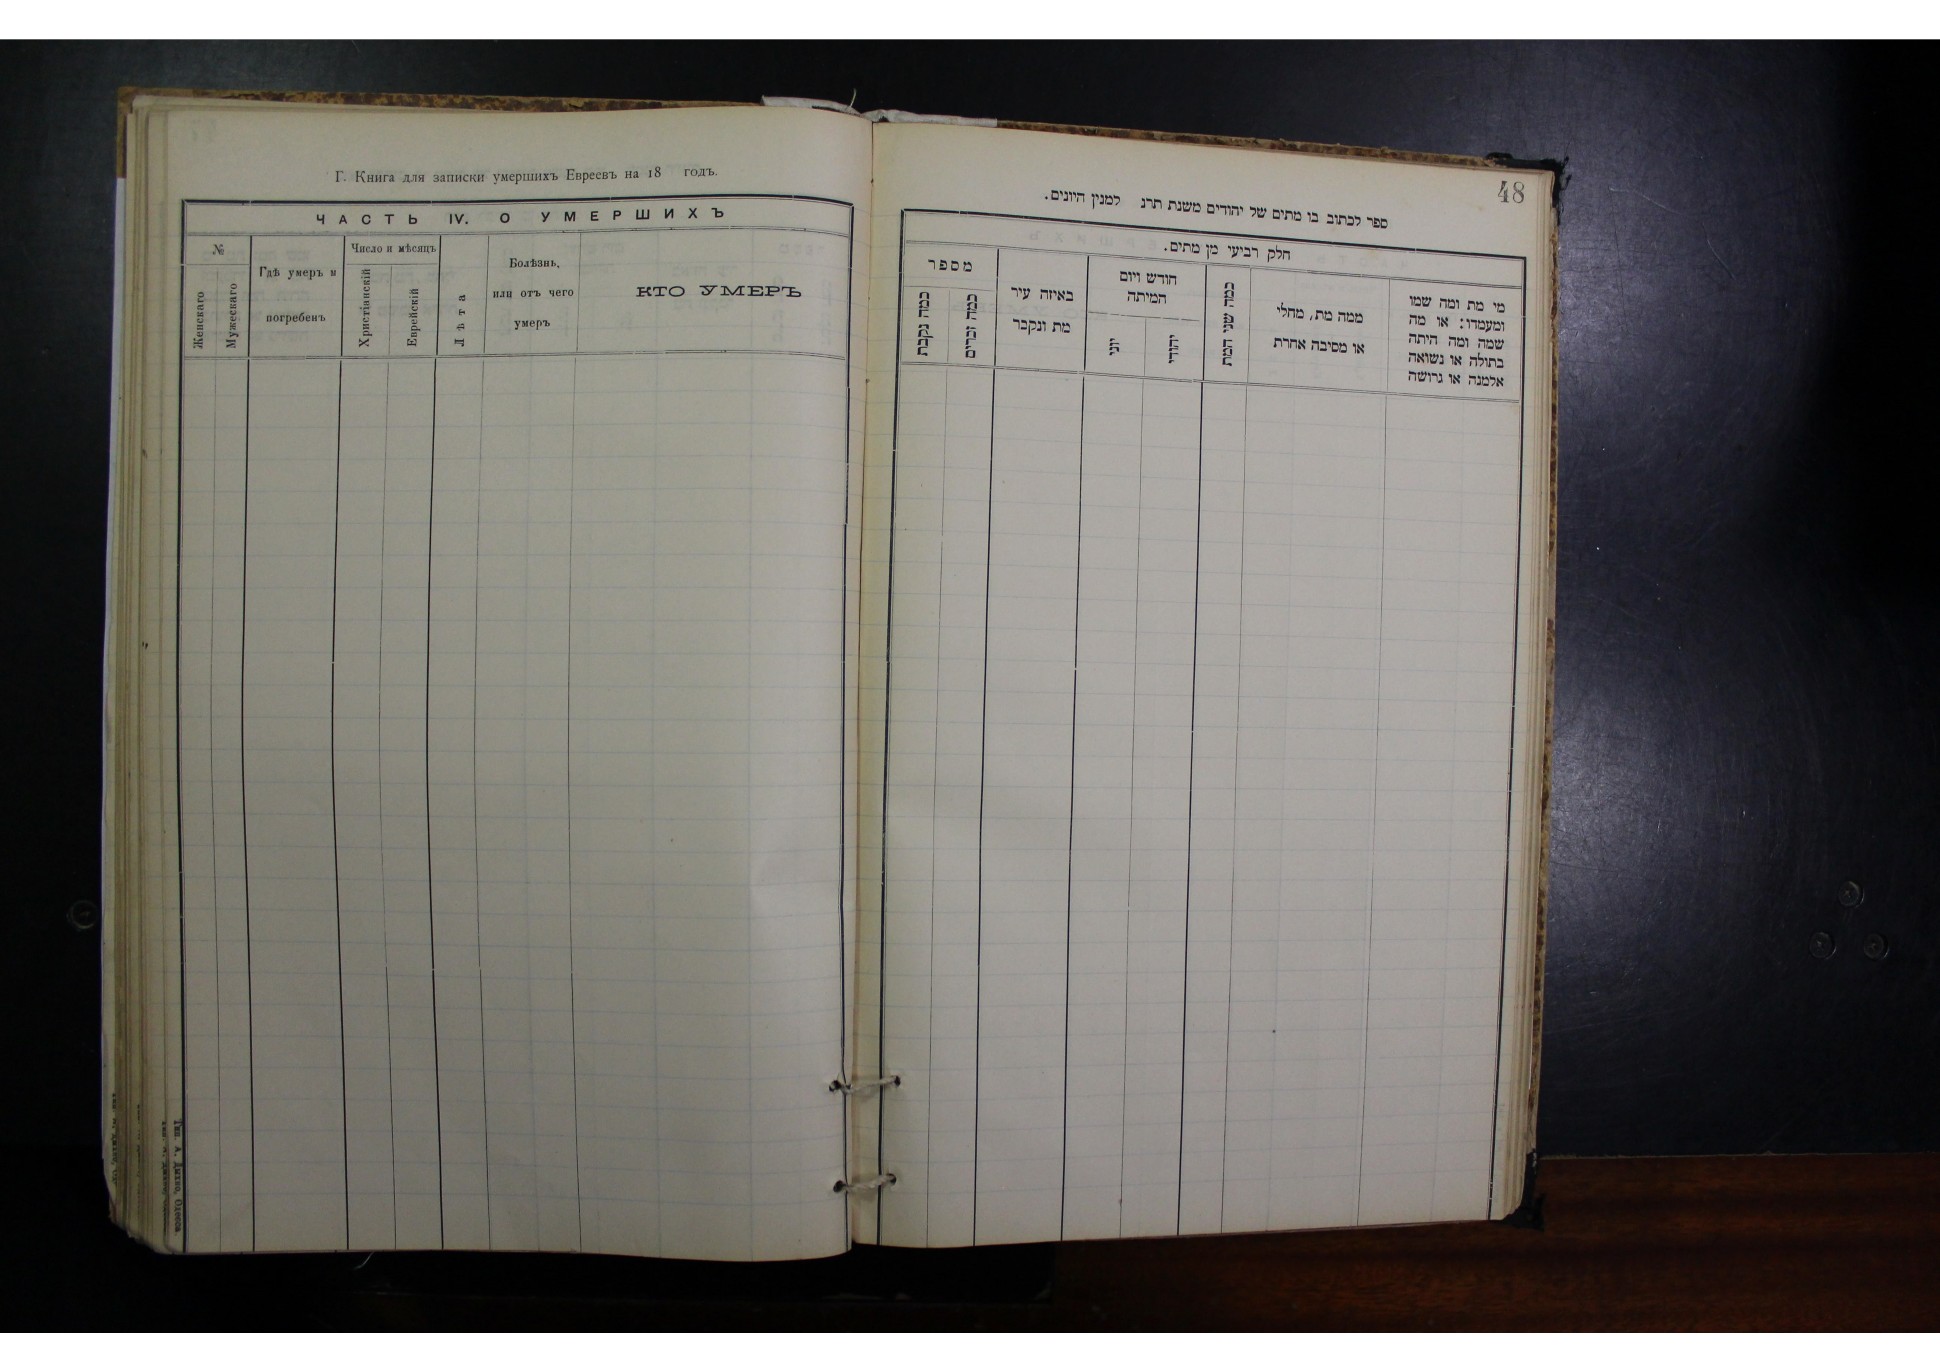 Г. Книга для записки умершихъ Евреевъ на 18 годъ.
ЧАСТЬ IV. О УМЕРШИХЪ
№
Женскаго
Мужескаго
Гдѣ умеръ и
погребенъ
Число и мѣсяцъ
Христіанскій
Еврейскій
Лѣта
Болѣзнь,
или отъ чего
умеръ
КТО УМЕРЪ
Тип. А. Дыхно, Одесса
48
ספר לכתוב בו מתים של יהודים משנת תרנ למנין היונים.
חלק רביעי מן מתים.
מספר
כמה נקבת
כמה זכרים
באיזה עיר
מת ונקבר
חודש ויום
המיתה
יוני
יהודי
כמה שני המת
ממה מת, מחלי
או מסיבה אחרת
מי מת ומה שמו
ומעמדו: או מה
שמה ומה היתה
בתולה או נשואה
אלמנה או גרושה